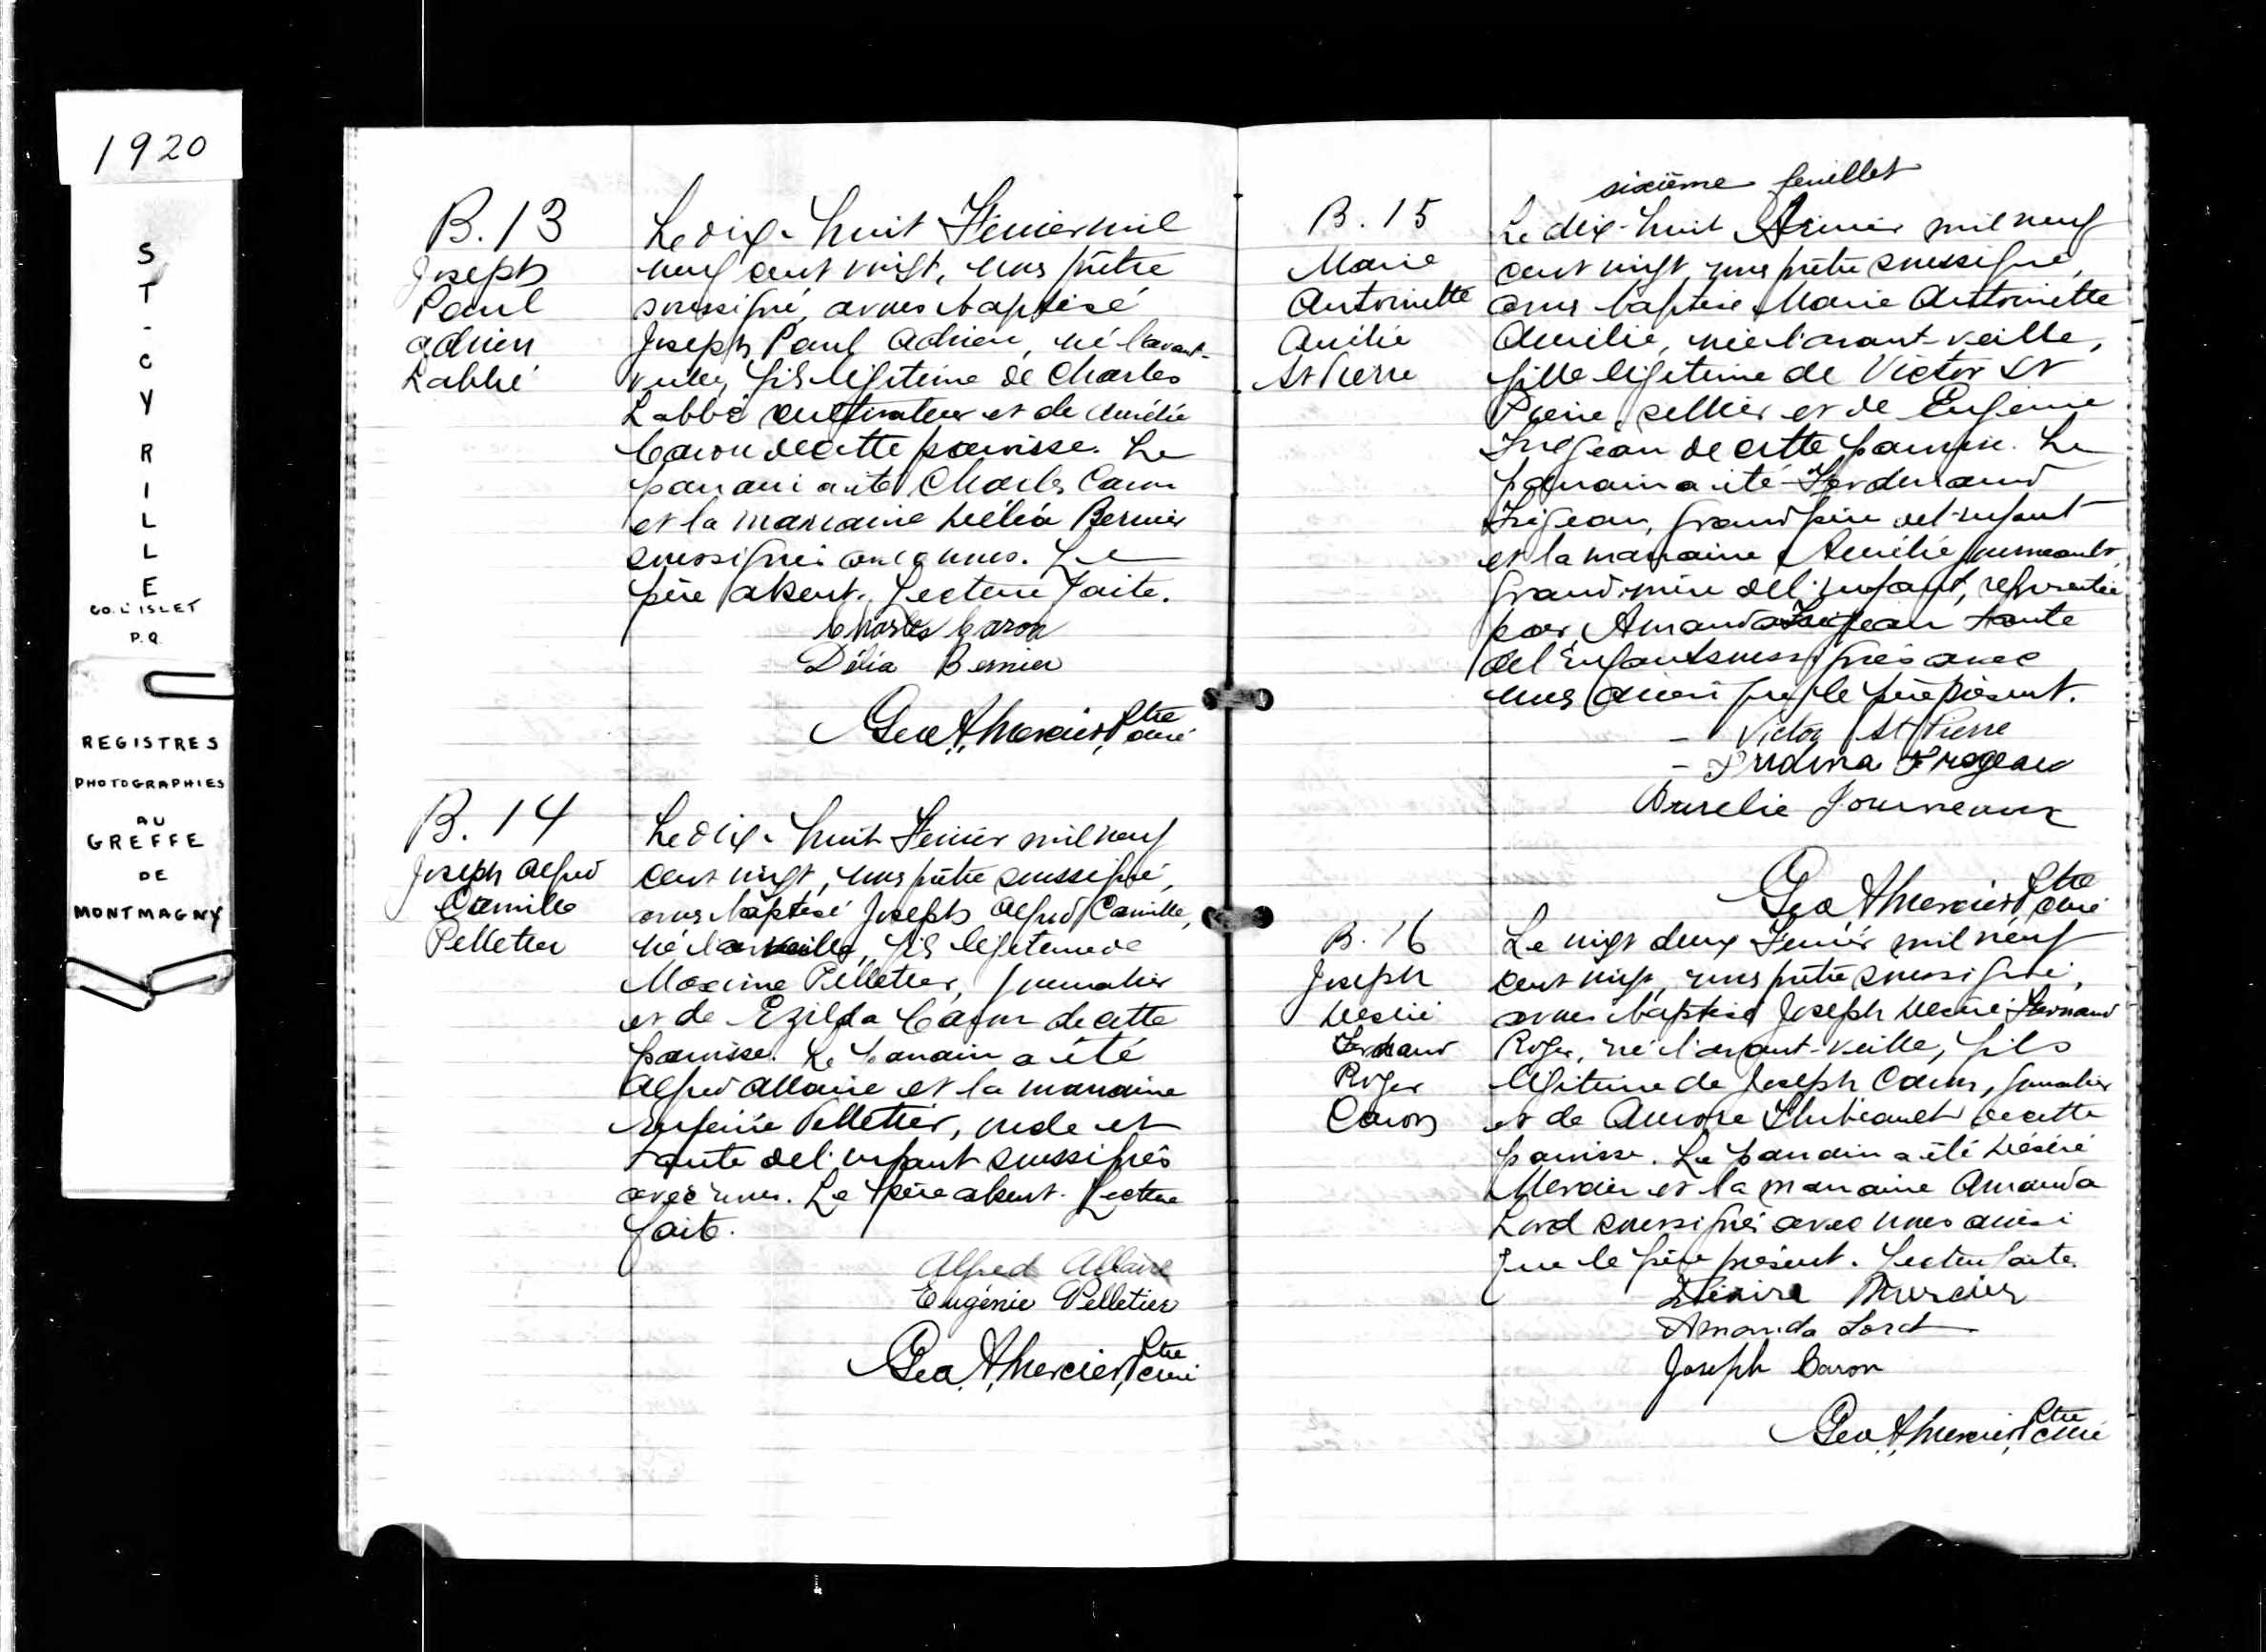 1920
ST-CYRILLE
CO. L'ISLET
P.Q.
REGISTRES
PHOTOGRAPHIES
AU
GREFFE
DE
MONTMAGNY
B. 13
Joseph
Paul
Adrien
Labbé
Le dix-huit Février mil
neuf cent vingt, nous prêtre
soussigné, avons baptisé
Joseph Paul Adrien, né l'avant-
veille, fils légitime de Charles
Labbé cultivateur et de Amélie
Caron de cette paroisse. Le
parrain a été Charles Caron
et la marraine Délia Bernier
soussignés avec nous. Le
père absent. Lecture faite.
Charles Caron
Délia Bernier
Geo A. Mercier Ptre curé
B. 14
Joseph Alfred
Camille
Pelletier
Le dix-huit Février mil neuf
cent vingt, nous prêtre soussigné,
avons baptisé Joseph Alfred Camille,
né la veille, fils légitime de
Maxime Pelletier, journalier
et de Ezilda Caron de cette
paroisse. Le parrain a été
Alfred Allaire et la marraine
Eugénie Pelletier, oncle et
tante de l'enfant soussignés
avec nous. Le père absent. Lecture
faite.
Alfred Allaire
Eugénie Pelletier
Geo A. Mercier Ptre curé
sixième feuillet
B. 15
Marie
Antoinette
Aurélie
St Pierre
Le dix-huit Février mil neuf
cent vingt, nous prêtre soussigné,
avons baptisé Marie Antoinette
Aurélie, née l'avant-veille,
fille légitime de Victor St
Pierre, sellier et de Eugénie
Frégeau de cette paroisse. Le
parrain a été Ferdinand
Frégeau, grand père de l'enfant
et la marraine Aurélie Journeault,
grand-mère de l'enfant, représentée
par Amanda Frégeau tante
de l'Enfant soussignés avec
nous ainsi que le père présent.
- Victor St Pierre
- Frégeau
Aurelie Journeaux
Geo A Mercier Ptre curé
B. 16
Joseph
Désiré
Fernand
Roger
Caron
Le vingt deux Février mil neuf
cent vingt, nous prêtre soussigné,
avons baptisé Joseph Désiré Fernand
Roger, né l'avant-veille, fils
légitime de Joseph Caron, journalier
et de Aurore Thibeault de cette
paroisse. Le parrain a été Désiré
Mercier et la marraine Amanda
Lord soussignés avec nous ainsi
que le père présent. Lecture faite.
Mercier
Amanda Lord
Joseph Caron
Geo A. Mercier Ptre curé